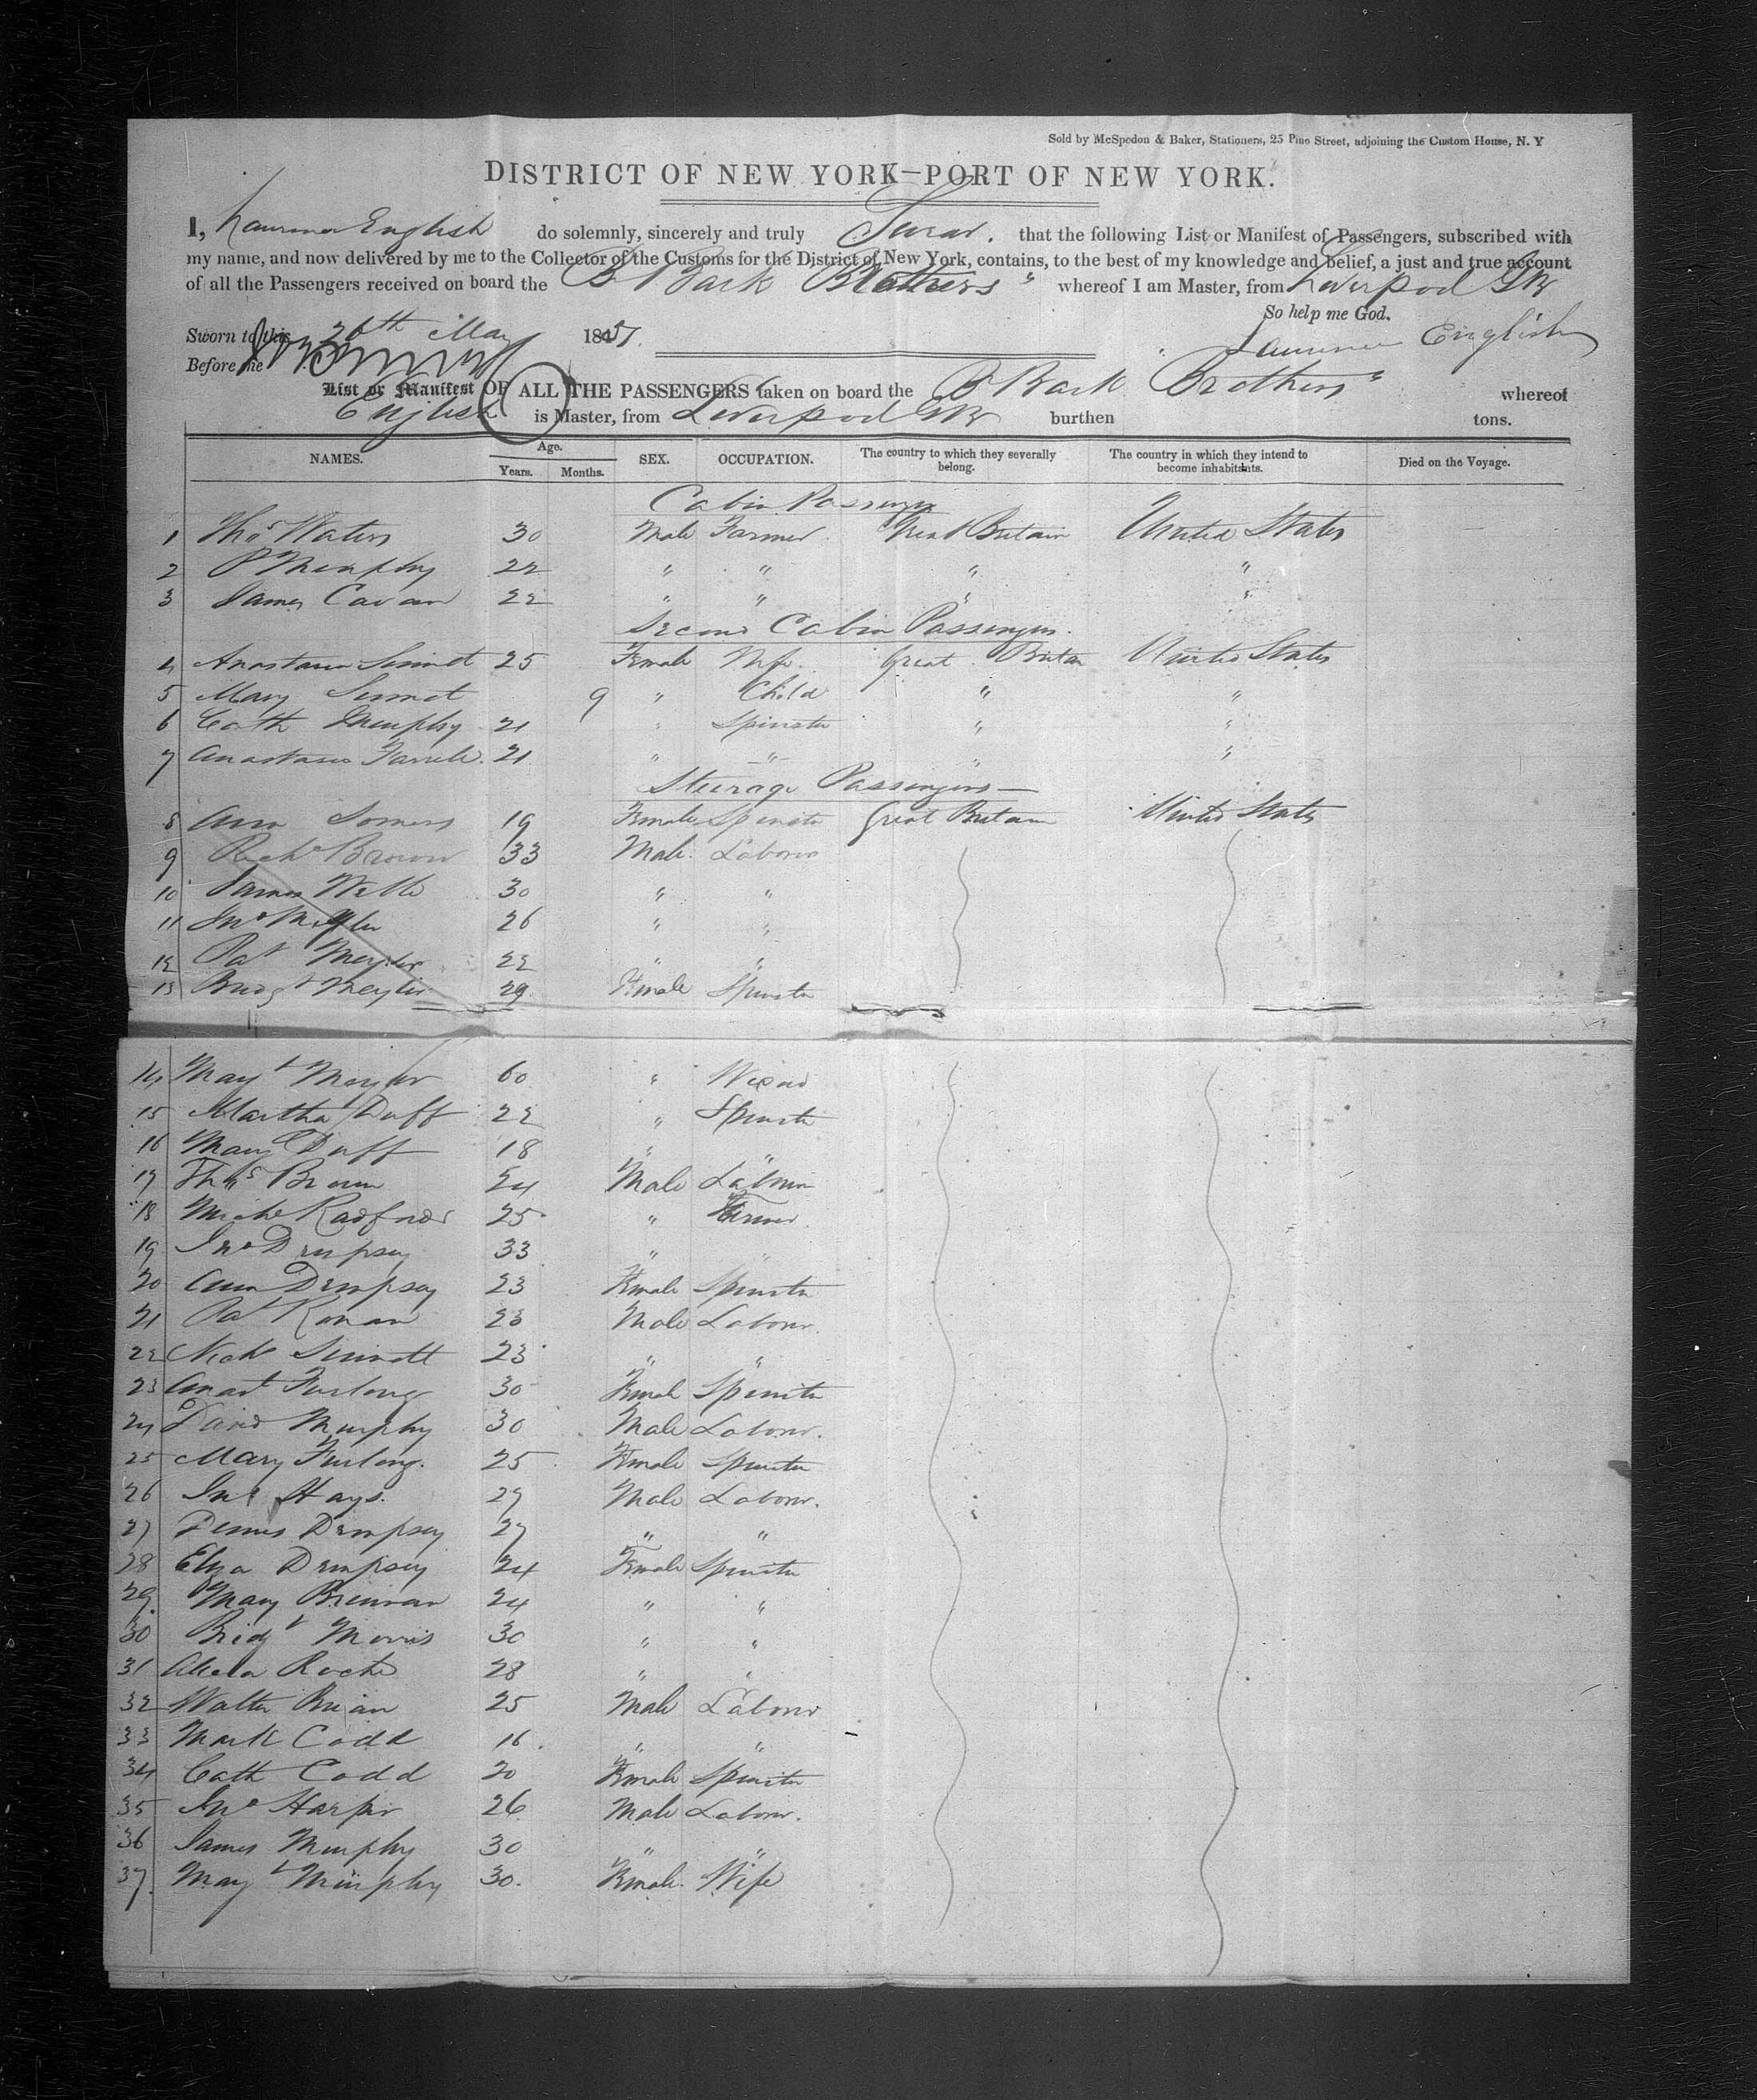 Sold by McSpedon & Baker, Stationers, 25 Pine Street, adjoining the Custom House, N. Y
DISTRICT OF NEW YORK—PORT OF NEW YORK.
I, Laurence English do solemnly, sincerely and truly Swear. that the following List or Manifest of Passengers, subscribed with
my name, and now delivered by me to the Collector of the Customs for the District of New York, contains, to the best of my knowledge and belief, a just and true account
of all the Passengers received on board the B Bark Brothers" whereof I am Master, from Liverpool GB
So help me God.
Sworn to this 26th May 1851. Laurence English
Before me
List or Manifest OF ALL THE PASSENGERS taken on board the B Bark Brothers" whereof
English is Master, from Liverpool GB burthen tons.
NAMES. Age. Years. Months. SEX. OCCUPATION. The country to which they severally belong. The country in which they intend to become inhabitants. Died on the Voyage.
Cabin Passengers
1 Thos Waters 30 Male Farmer Great Britain United States
2 P Murphy 22 " " " "
3 James Cavan 22 " " " "
Second Cabin Passengers.
4 Anastasia Sinnot 25 Female Wife. Great Britain United States
5 Mary Sinnot 9 " Child " "
6 Cath Murphy 21 " Spinster " "
7 Anastasia 21 " " " "
Steerage Passengers—
8 Ann Somers 19 Female Spinster Great Britain United States
9 Richd Brown 33 Male. Laborer
10 James 30 " "
11 Jno 26 " "
12 Pat Meyler 22 " "
13 Bridgt Meyler 29 Female Spinster
14 Magt Meyler 60 "
15 Martha Duff 22 " Spinster
16 Mary Duff 18 " "
17 Thos Brown 24 Male Laborer
18 Michl Radford 25 " Farmer
19 Jno Dempsey 33 " "
20 Ann Dempsey 23 Female Spinster
21 Pat Ronan 23 Male Laborer.
22 Nichs Sinnott 23 " "
23 Anast Furlong 30 Female Spinster
24 David Murphy 30 Male Laborer.
25 Mary Furlong. 25 Female Spinster
26 Jno Hays. 27 Male Laborer.
27 Dennis Dempsey 27 " "
28 Eliza Dempsey 24 Female Spinster
29 Mary Brennan 24 " "
30 Bridgt Morris 30 " "
31 Alicia Roche 28 " "
32 Walter 25 Male Laborer
33 Mark Codd 16. " "
34 Cath Codd 20 Female Spinster
35 Jno Harper 26 Male Laborer.
36 James Murphy 30 " "
37 Magt Murphy 30. Female. Wife